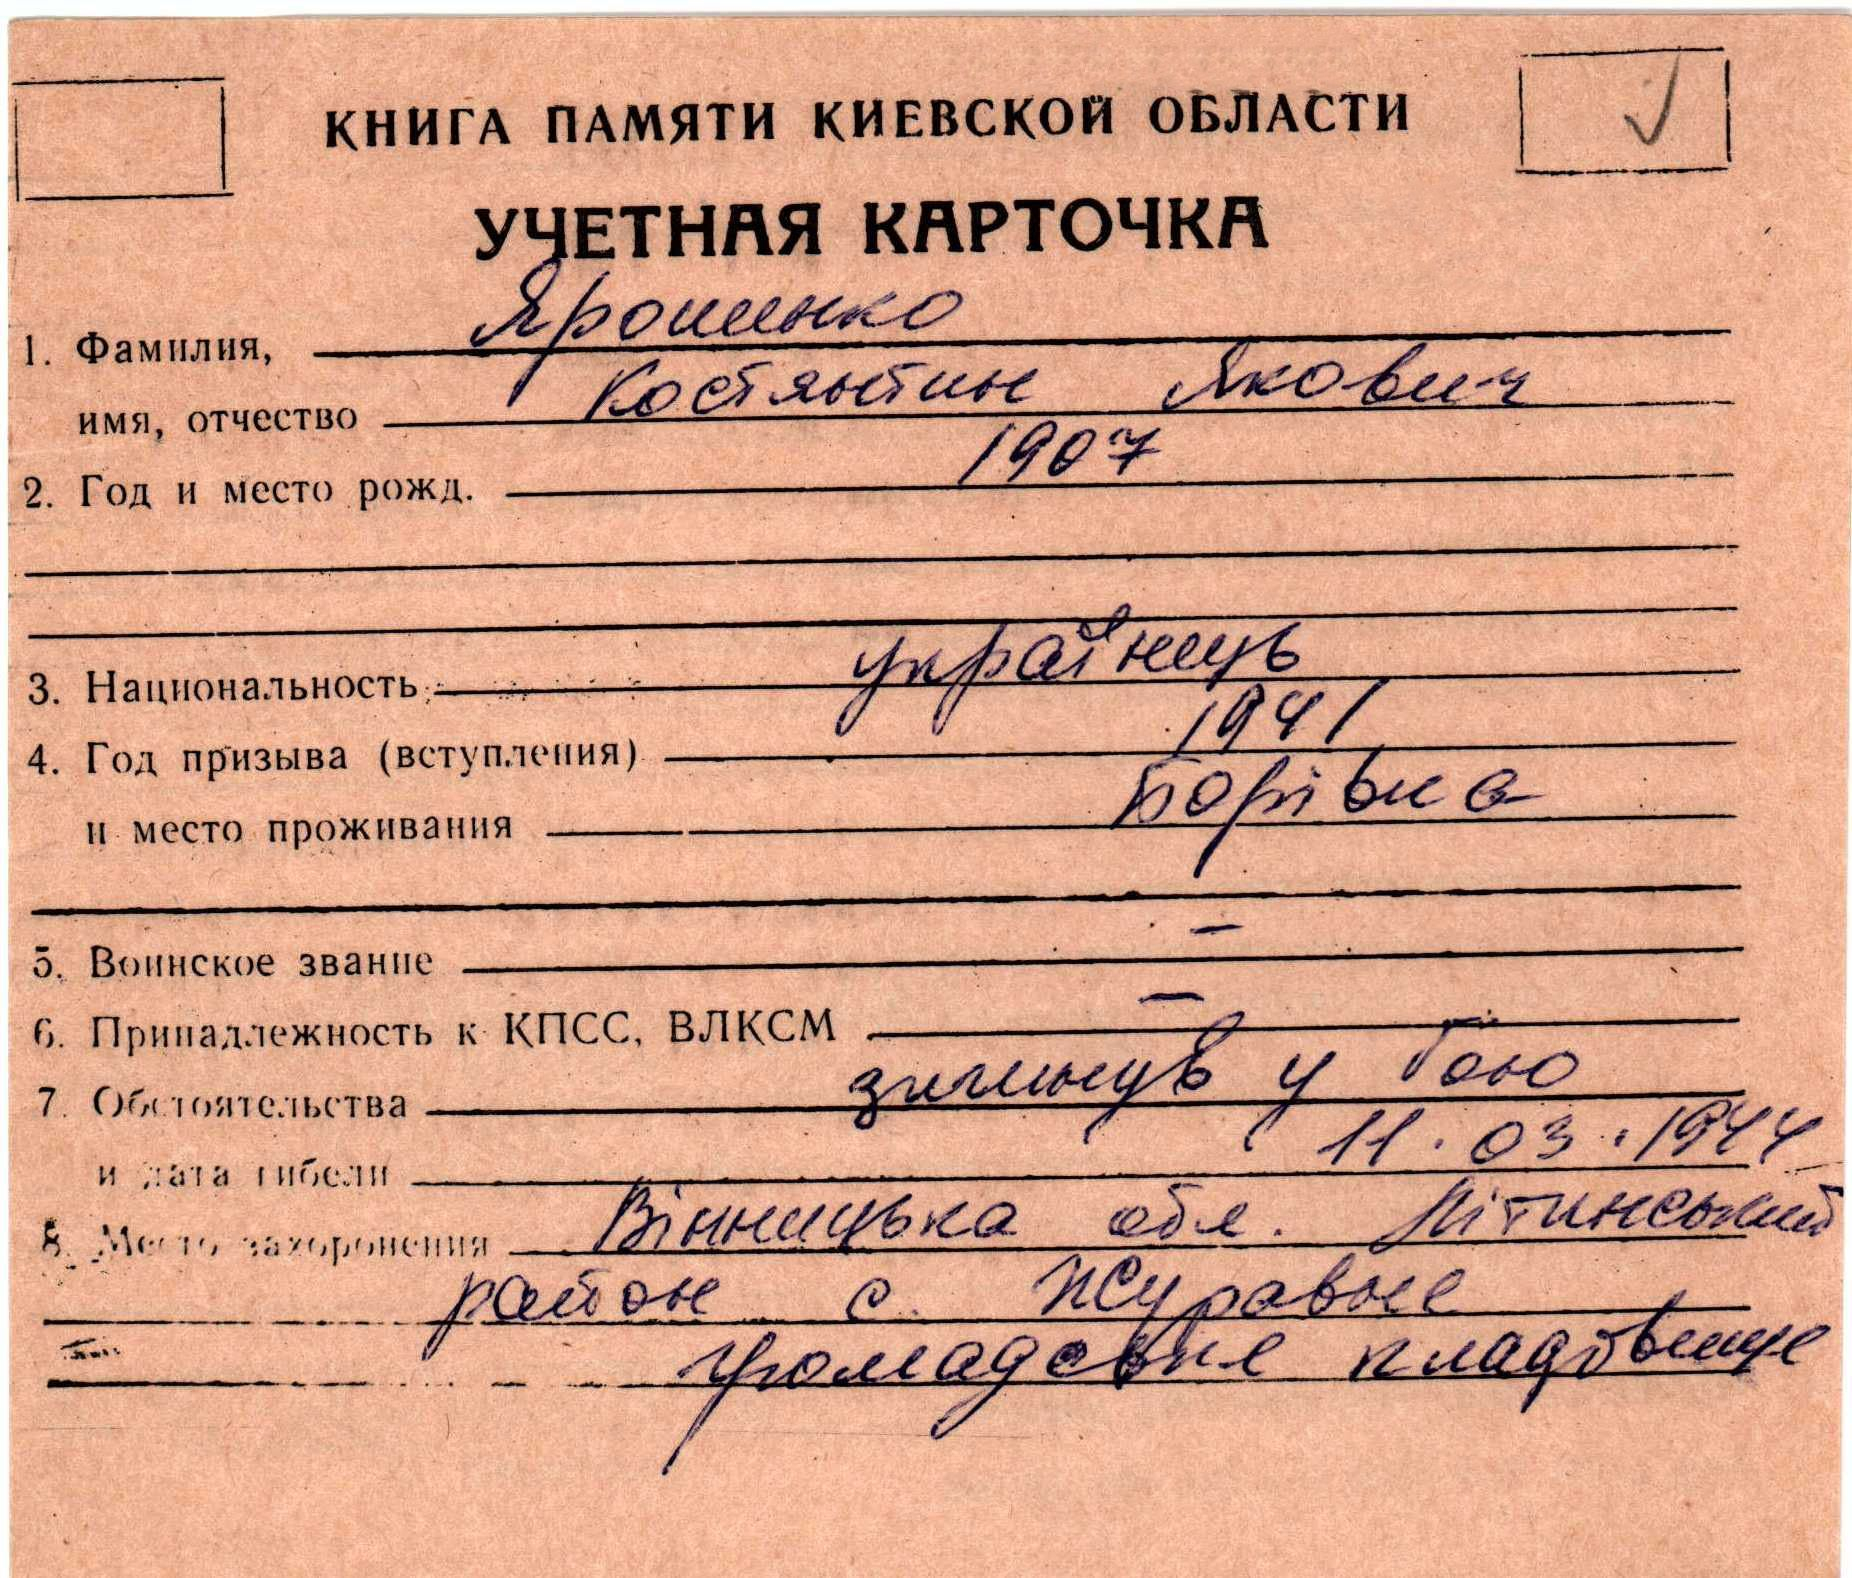 КНИГА ПАМЯТИ КИЕВСКОЙ ОБЛАСТИ
УЧЕТНАЯ КАРТОЧКА
1. Фамилия, Ярошенко
имя, отчество Костянтин Якович
2. Год и место рожд. 1907
3. Национальность українець
4. Год призыва (вступления) 1941
и место проживания Борівка
5. Воинское звание –
6. Принадлежность к КПСС, ВЛКСМ –
7. Обстоятельства загинув у бою
и дата гибели 11.03.1944
8. Место захоронения Вінницька обл. Літинський
район с. Журавне
громадське кладбвище